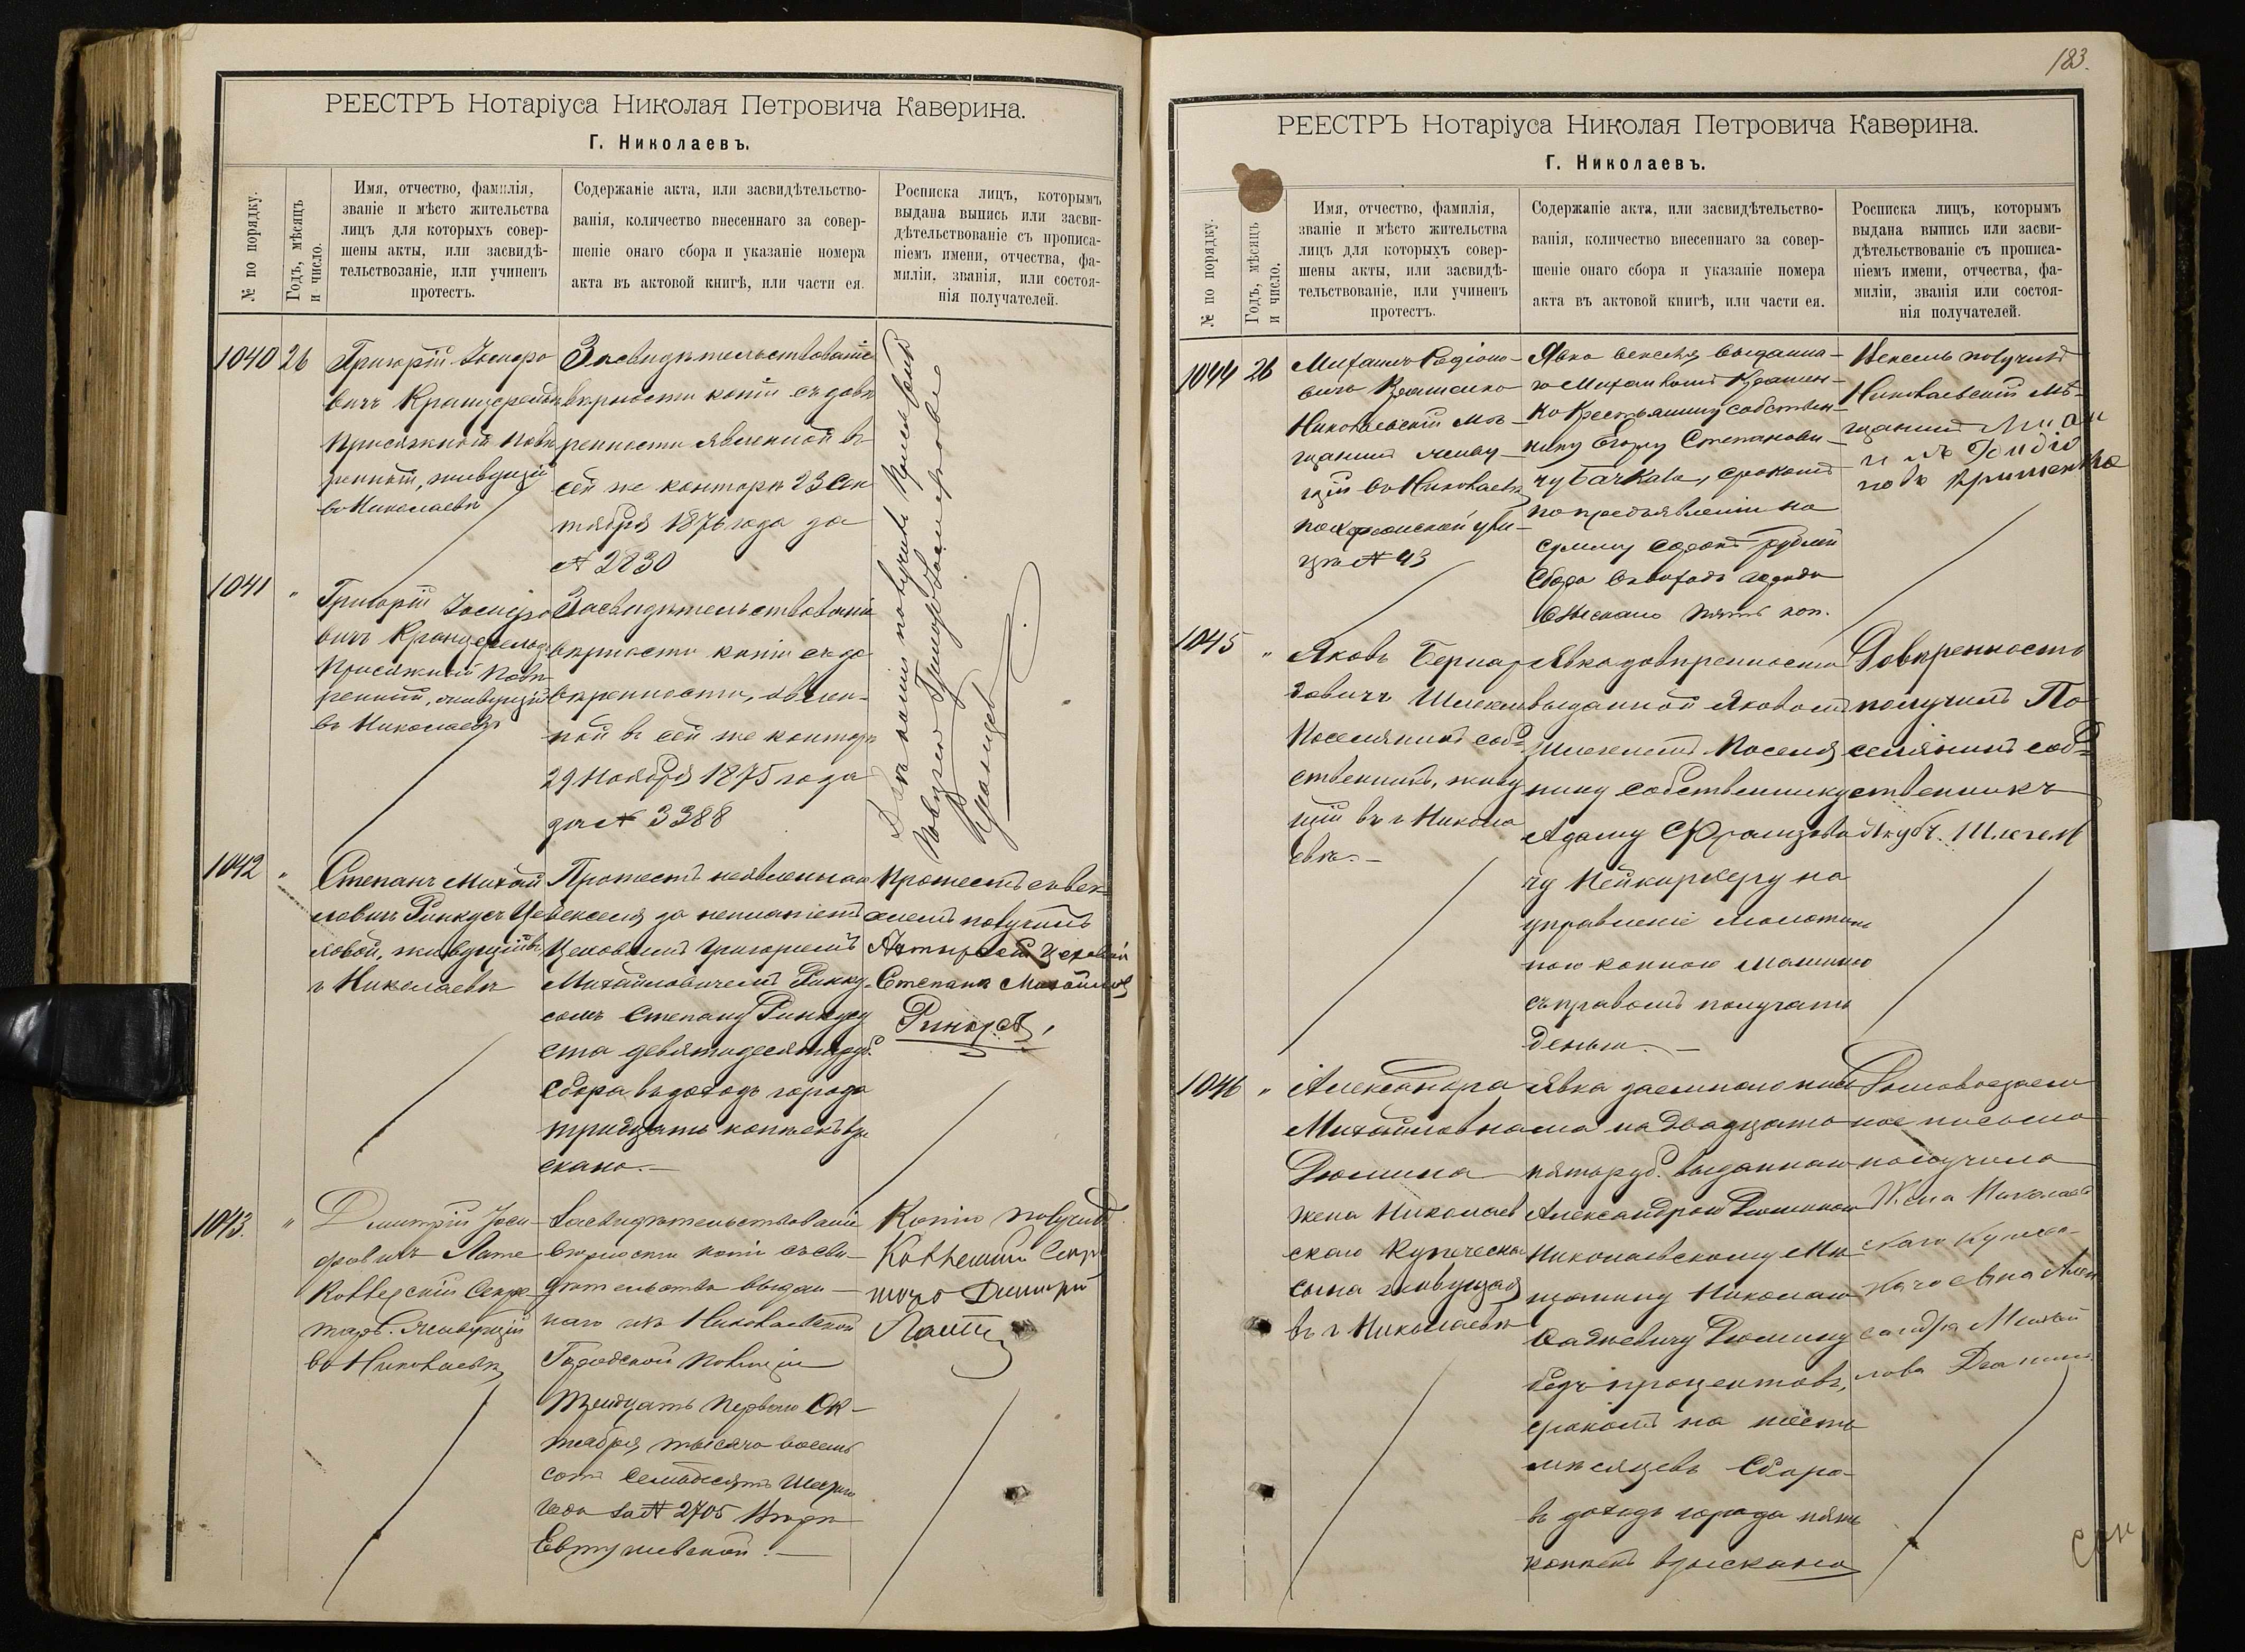 РЕЕСТРЪ Нотаріуса Николая Петровича Каверина.
Г. Николаевъ.
№ по порядку.
Годъ, мѣсяцъ
и число.
Имя, отчество, фамилія,
званіе и мѣсто жительства
лицъ для которыхъ совер-
шены акты, или засвидѣ-
тельствованіе, или учиненъ
протестъ.
Содержаніе акта, или засвидѣтельство-
ванія, количество внесеннаго за совер-
шеніе онаго сбора и указаніе номера
акта въ актовой книгѣ, или части ея.
Росписка лицъ, которымъ
выдана выпись или засви-
дѣтельствованіе съ прописа-
ніемъ имени, отчества, фа-
миліи, званія, или состоя-
нія получателей.
1040 26
Григорій Іосифо
вичъ
Присяжный Повѣ
ренный, живущій
въ Николаевѣ
Засвидѣтельствованіе
вѣрности копіи съ довѣ
ренности явленной въ
сей же конторѣ 23 Сен
тября 1876 года за
№ 2830
1041 "
Григорій Іосифо
вичъ
Присяжный Повѣ
ренный, живущій
въ Николаевѣ
Засвидѣтельствованіе
вѣрности копіи съ до
вѣренности, явлен-
ной въ сей же конторѣ
29 Ноября 1875 года
за № 3388
Двѣ копіи получилъ Присяжный
Повѣренный Григорій Іосифовичъ
1042 "
Степанъ Михай
ловичъ Ринкусъ Це
ховой, живущій въ
г Николаевѣ
Протестъ неявленнаго
векселя за неплатежъ
Цеховымъ Григоріемъ
Михайловичемъ Ринку
сомъ Степану Ринкусу
ста девятидесяти руб.
Сбора въ доходъ города
тридцать копѣекъ взы
скано.—
Протестъ съ век
селемъ получилъ
Цеховой
Степанъ Михайлов
Ринкусъ
1043. "
Дмитрій Іоси-
фовичъ Латте
Коллежскій Секре
тарь. Живущій
въ Николаевѣ
Засвидѣтельствованіе
вѣрности копіи съ сви-
дѣтельства выдан-
наго изъ Николаевской
Городской Полиціи
Тридцать перваго Ок-
тября тысяча восемь
сотъ семьдесятъ Шестаго
года за № 2705 Вѣрѣ
Евтушевской.—
Копію получилъ
Дмитрій
Латте
183.
РЕЕСТРЪ Нотаріуса Николая Петровича Каверина.
Г. Николаевъ.
№ по порядку.
Годъ, мѣсяцъ
и число.
Имя, отчество, фамилія,
званіе и мѣсто жительства
лицъ для которыхъ совер-
шены акты, или засвидѣ-
тельствованіе, или учиненъ
протестъ.
Содержаніе акта, или засвидѣтельство-
ванія, количество внесеннаго за совер-
шеніе онаго сбора и указаніе номера
акта въ актовой книгѣ, или части ея.
Росписка лицъ, которымъ
выдана выпись или засви-
дѣтельствованіе съ прописа-
ніемъ имени, отчества, фа-
миліи, званія или состоя-
нія получателей.
1044 26
Михаилъ Родіоно-
вичъ
Николаевскій Мѣ-
щанинъ живу-
щій въ Николаевѣ
по Херсонской ули-
цѣ № 43
Явка векселя выданна-
го Михаиломъ
Крестьянину собствен-
нику Егору Степанови-
чу Бачкала, срокомъ
по предъявленіи на
сумму сорокъ рублей
Сбора въ доходъ города
взыскано пять коп.
Вексель получилъ
Николаевскій Мѣ-
щанинъ
1045 "
Яковъ Бернар
довичъ Шлегель
Поселянинъ соб-
ственникъ, живу
щій въ г Никола
евѣ.—
Явка довѣренности
выданной Яковомъ
Шлегелемъ Поселя
нину собственнику
Адаму Францови
чу Нейкирхеру на
управленіе молотиль
ною конною машиною
съ правомъ получать
деньги.—
Довѣренность
получилъ По
селянинъ соб-
ственникъ
Якубъ Шлегель
1046 "
Александра
Михайловна
Дюмина
жена Николаев
скаго Купеческаго
сына живущая
въ г Николаевѣ
Явка заемнаго пись
ма на двадцать
пять руб. выданнаго
Александрою Дюминою
Николаевскому Мѣ
щанину Николаю
Дюмину
безъ процентовъ,
срокомъ на шесть
мѣсяцевъ Сбора
въ доходъ города пять
копѣекъ взыскано
ное письмо
получила
Жена Николаев
скаго Купечес
каго сына Алек
сандра Михай
лова Дюмина